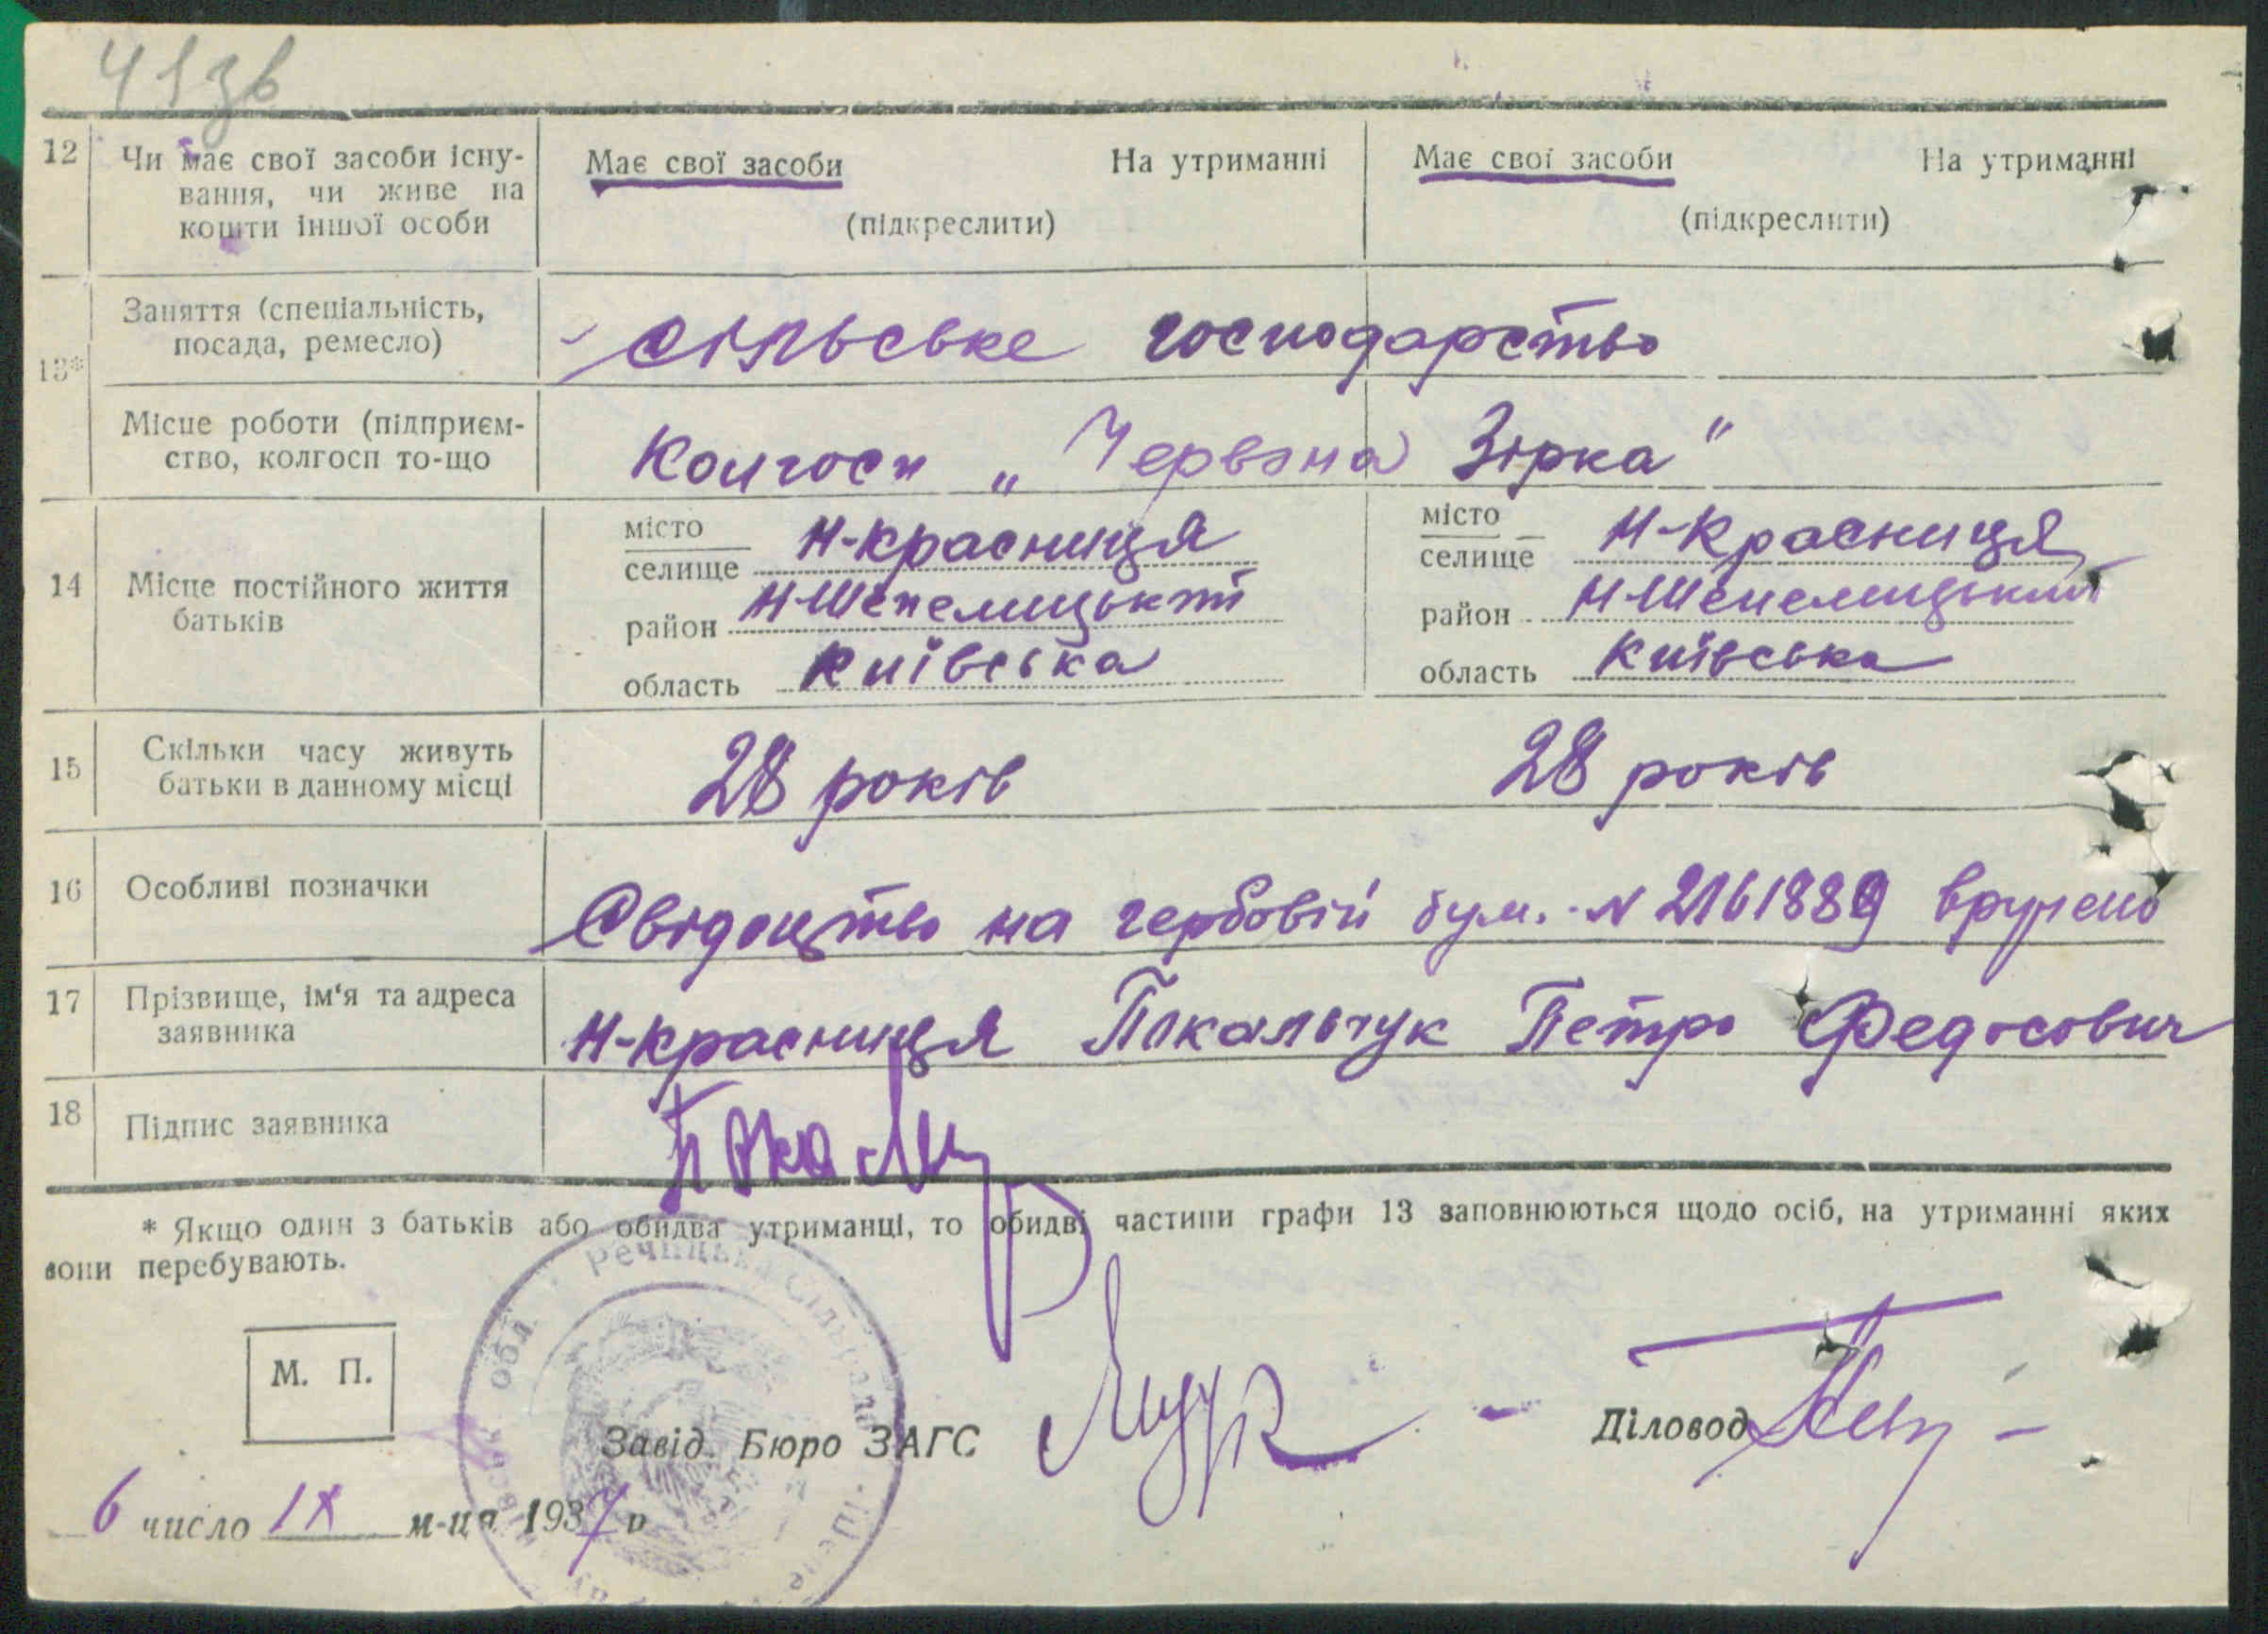 41зв
12 Чи має свої засоби існу- Має свої засоби На утриманні Має свої засоби На утриманні
вання, чи живе на
кошти іншої особи (підкреслити) (підкреслити)
Заняття (спеціальність,
посада, ремесло) сільське господарство
13*
Місце роботи (підприєм-
ство, колгосп то-що Колгосп „Червона Зірка"
місто Н-Красниця місто Н-Красниця
селище селище
14 Місце постійного життя район Н-Шепелицький район Н-Шепелицький
батьків
область Київська область Київська
15 Скільки часу живуть 28 років 28 років
батьки в данному місці
16 Особливі позначки Свідоцтво на гербовій бум. N 2161889 вручено
17 Прізвище, ім'я та адреса
заявника Н-Красниця Пкальчук Петро Федосович
18 Підпис заявника
* Якщо один з батьків або обидва утриманці, то обидві частини графи 13 заповнюються щодо осіб, на утриманні яких
вони перебувають.
Речицька Сільрада
обл.
М. П.
Завід. Бюро ЗАГС Діловод
6 число IX м-ця 1937 р